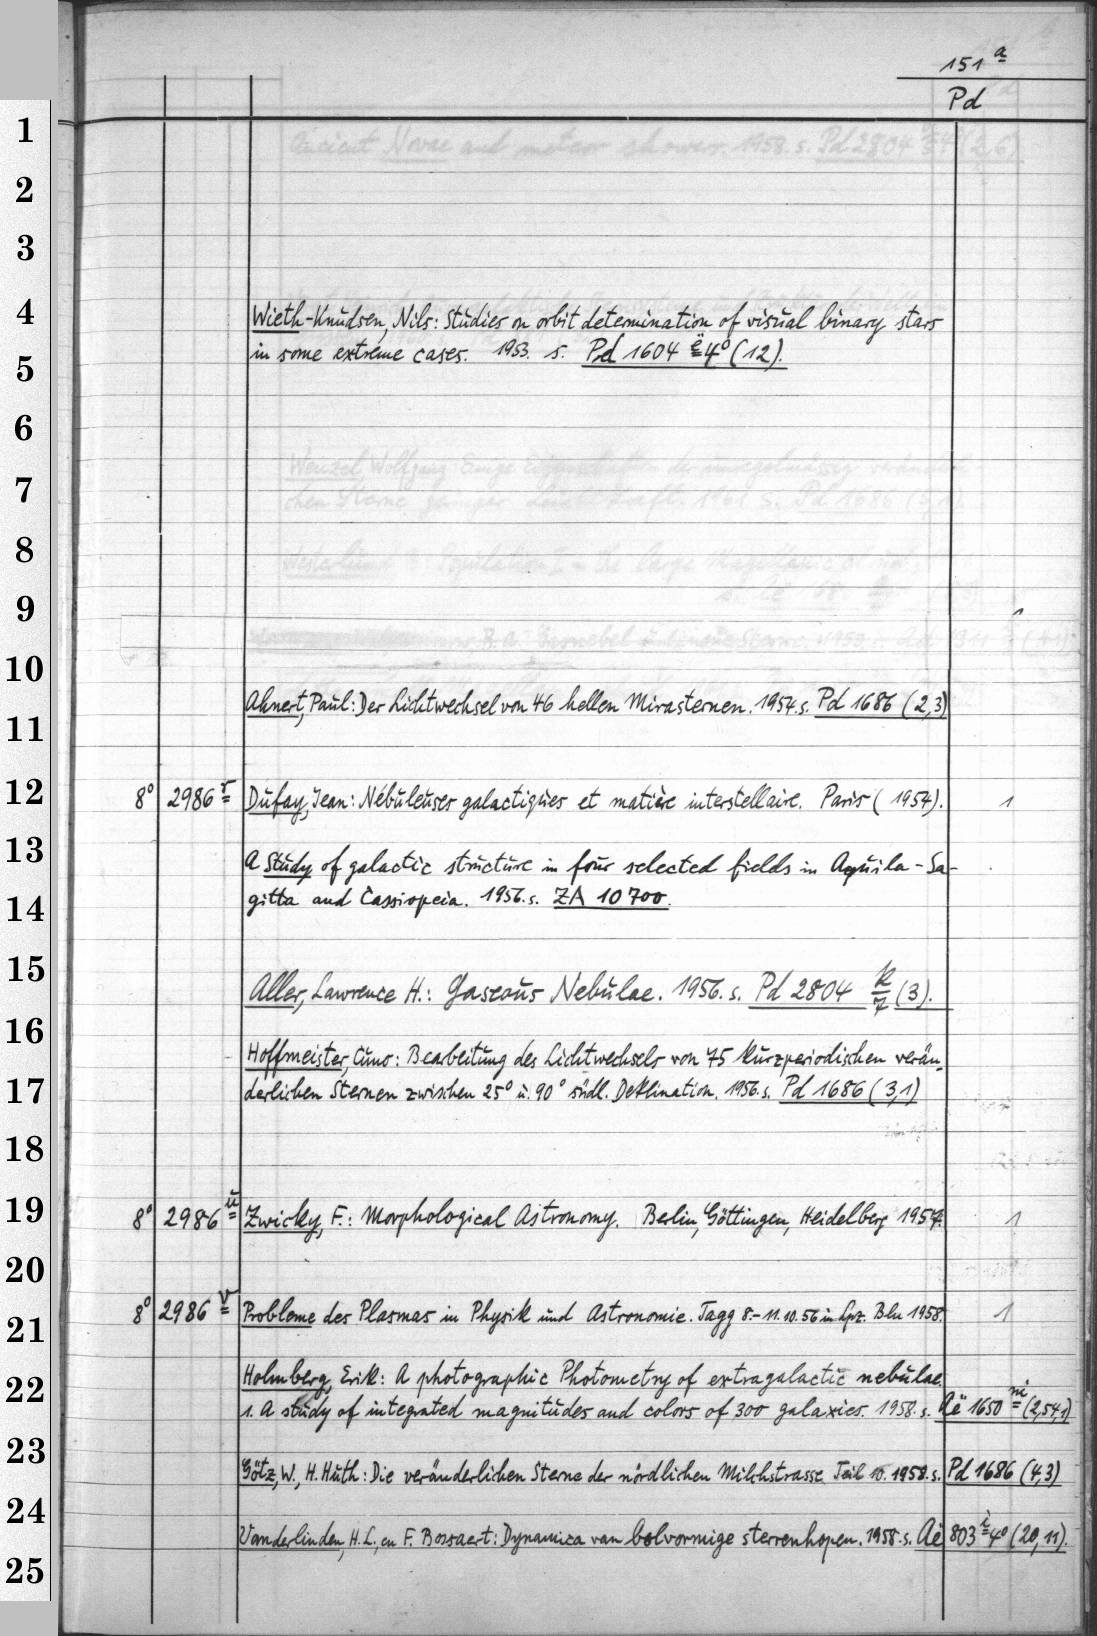 151 a
Pd
1
2
3
4
Wieth-Knudsen, Nils: Studies on orbit determination of visual binary stars
in some extreme cases. 1953. s. Pd 1604 ë 4° (12).
5
6
7
8
9
10
Ahnert, Paul: Der Lichtwechsel von 46 hellen Mirasternen. 1954. s. Pd 1686 (2,3)
11
12 8° 2986 r Dufay, Jean: Nébuleuses galactiques et matière interstellaire. Paris (1954). 1
13
A Study of galactic structure in four selected fields in Aquila-Sa-
14 gitta and Cassiopeia. 1956. s. ZA 10700.
15
Aller, Lawrence H.: Gaseous Nebulae. 1956. s. Pd 2804 k/7 (3).
16
Hoffmeister, Cuno: Bearbeitung des Lichtwechsels von 75 kurzperiodischen verän-
17 derlichen Sternen zwischen 25° u. 90° südl. Deklination. 1956. s. Pd 1686 (3,1)
18
19 8° 2986 u Zwicky, F.: Morphological Astronomy. Berlin, Göttingen, Heidelberg 1957. 1
20
8° 2986 v Probleme des Plasmas in Physik und Astronomie. Tagg 8.-11.10.56 in Lpz. Bln 1958. 1
21
22 Holmberg, Erik: A photographic Photometry of extragalactic nebulae.
1. A study of integrated magnitudes and colors of 300 galaxies. 1958. s. Aë 1650 m (2,54,1)
23
Götz, W., H. Huth: Die veränderlichen Sterne der nördlichen Milchstrasse Teil 10. 1958. s. Pd 1686 (4,3)
24
Vanderlinden, H. L., en F. Bossaert: Dynamica van bolvormige sterrenhopen. 1958. s. Aë 803 i 4° (20, 11).
25